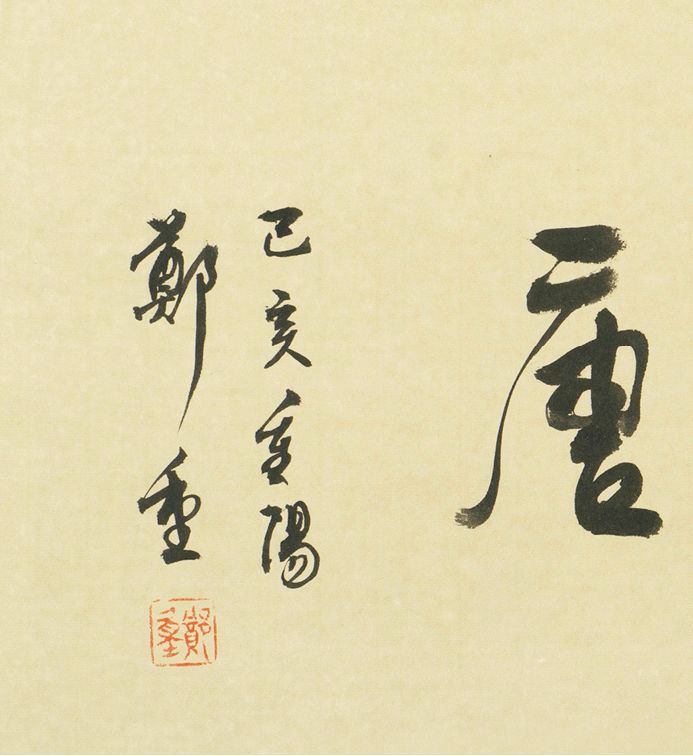 唐
己亥重陽
鄭重
鄭重